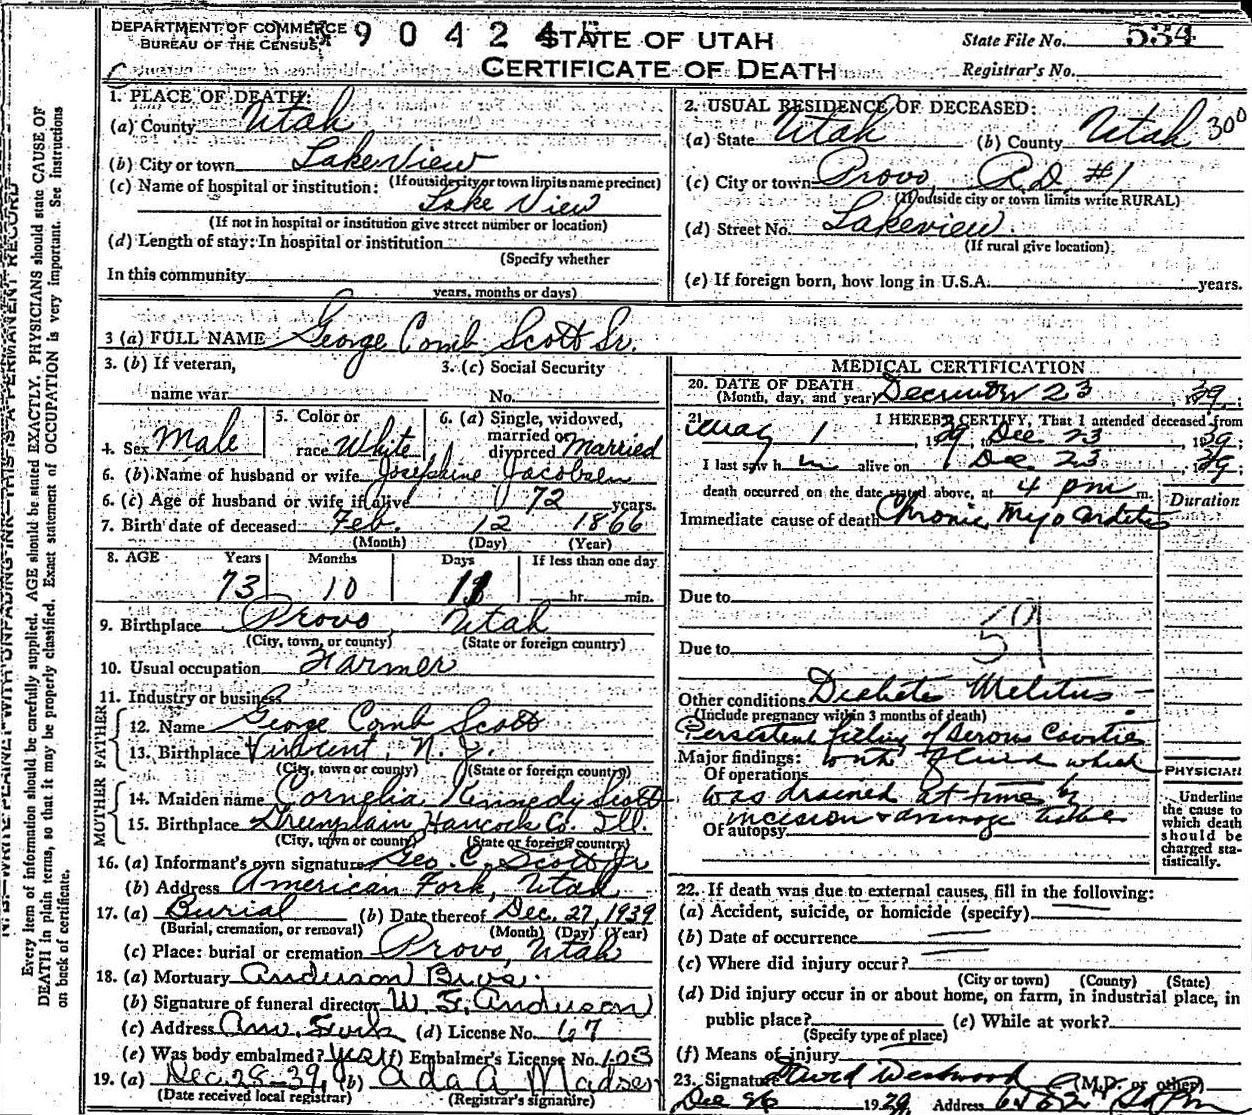 DEPARTMENT OF COMMERCE
BUREAU OF THE CENSUS
90424
STATE OF UTAH
CERTIFICATE OF DEATH
State File No. 534
Registrar's No.
N. B.—WRITE PLAINLY WITH UNFADING INK—THIS IS A PERMANENT RECORD
Every item of information should be carefully supplied. AGE should be stated EXACTLY. PHYSICIANS should state CAUSE OF
DEATH in plain terms, so that it may be properly classified. Exact statement of OCCUPATION is very important. See Instructions
on back of certificate.
1. PLACE OF DEATH:
(a) County Utah
(b) City or town Lakeview
(If outside city or town limits name precinct)
(c) Name of hospital or institution:
Lake View
(If not in hospital or institution give street number or location)
(d) Length of stay: In hospital or institution
(Specify whether
In this community
years, months or days)
2. USUAL RESIDENCE OF DECEASED:
(a) State Utah (b) County Utah 300
(c) City or town Provo R.D. #1
(If outside city or town limits write RURAL)
(d) Street No. Lakeview
(If rural give location)
(e) If foreign born, how long in U.S.A. years.
3 (a) FULL NAME George Comb Scott Sr.
3. (b) If veteran,
name war
3. (c) Social Security
No.
4. Sex Male
5. Color or
race White
6. (a) Single, widowed,
married or
divorced Married
6. (b) Name of husband or wife Josephine Jacobsen
6. (c) Age of husband or wife if alive 72 years.
7. Birth date of deceased Feb. 12 1866
(Month) (Day) (Year)
8. AGE Years Months Days If less than one day
73 10 11 hr. min.
9. Birthplace Provo Utah
(City, town, or county) (State or foreign country)
10. Usual occupation Farmer
11. Industry or business
FATHER
12. Name George Comb Scott
13. Birthplace Vincent, N. J.
(City, town or county) (State or foreign country)
MOTHER
14. Maiden name Cornelia Kennedy Scott
15. Birthplace Greenplain Hancock Co. Ill.
(City, town or county) (State or foreign country)
16. (a) Informant's own signature Geo. C. Scott Jr
(b) Address American Fork, Utah
17. (a) Burial (b) Date thereof Dec. 27, 1939
(Burial, cremation, or removal) (Month) (Day) (Year)
(c) Place: burial or cremation Provo, Utah
18. (a) Mortuary Anderson Bros.
(b) Signature of funeral director W. F. Anderson
(c) Address Am. Fork (d) License No. 67
(e) Was body embalmed? yes (f) Embalmer's License No. 103
19. (a) Dec. 28-39 (b) Ada A Madsen
(Date received local registrar) (Registrar's signature)
MEDICAL CERTIFICATION
20. DATE OF DEATH
(Month, day, and year) December 23, 1939;
21. I HEREBY CERTIFY, That I attended deceased from
May 1, 1939, to Dec 23 1939;
I last saw him alive on Dec 23, 1939;
death occurred on the date stated above, at 4 pm m.
Duration
Immediate cause of death Chronic Myocarditis
Due to
Due to
Other conditions Diabetes Melitus -
(Include pregnancy within 3 months of death)
Persistent filling of Serous Cavities
Major findings: with fluid which
Of operations
was drained at times by
incision & drainage tubes
Of autopsy
PHYSICIAN
Underline
the cause to
which death
should be
charged sta-
tistically.
22. If death was due to external causes, fill in the following:
(a) Accident, suicide, or homicide (specify)
(b) Date of occurrence
(c) Where did injury occur?
(City or town) (County) (State)
(d) Did injury occur in or about home, on farm, in industrial place, in
public place? (e) While at work?
(Specify type of place)
(f) Means of injury
23. Signature David Westwood (M.D. or other)
Dec 26 1939 Address